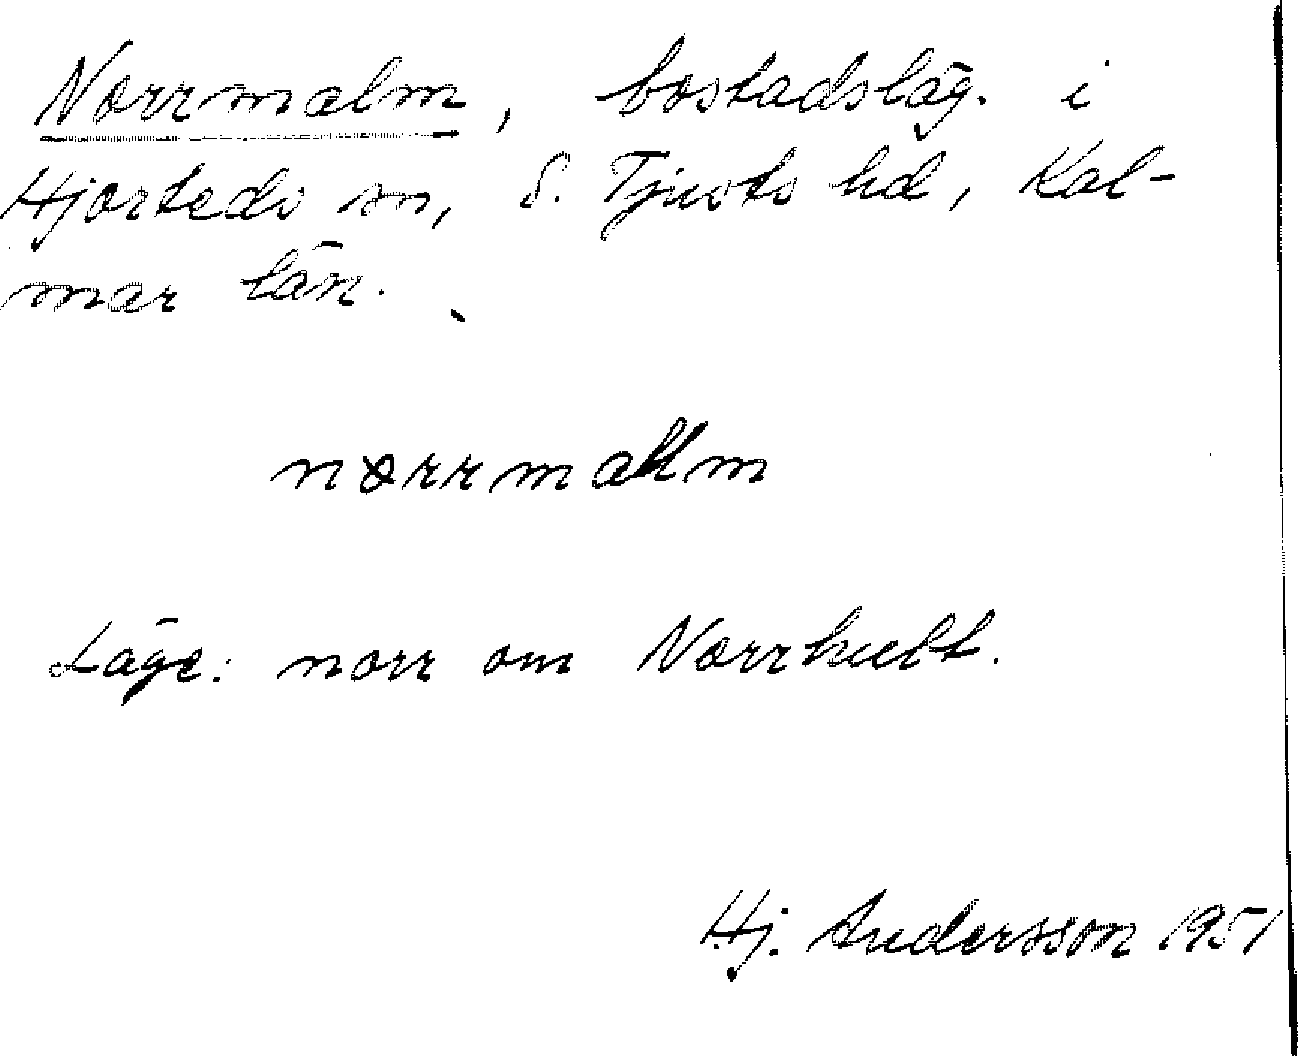 Norrmalm, bostadsläg. i
Hjorteds sn, S. Tjusts hd, Kal-
mar län.
norrmallm
Läge: norr om Norrhult.
Hj. Andersson 1951